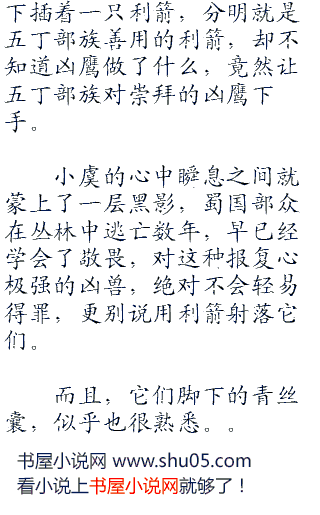 下插着一只利箭，分明就是
五丁部族善用的利箭，却不
知道凶鹰做了什么，竟然让
五丁部族对崇拜的凶鹰下
手。
小虞的心中瞬息之间就
蒙上了一层黑影，蜀国部众
在丛林中逃亡数年，早已经
学会了敬畏，对这种报复心
极强的凶兽，绝对不会轻易
得罪，更别说用利箭射落它
们。
而且，它们脚下的青丝
囊，似乎也很熟悉。。
书屋小说网 www.shu05.com
看小说上书屋小说网就够了！